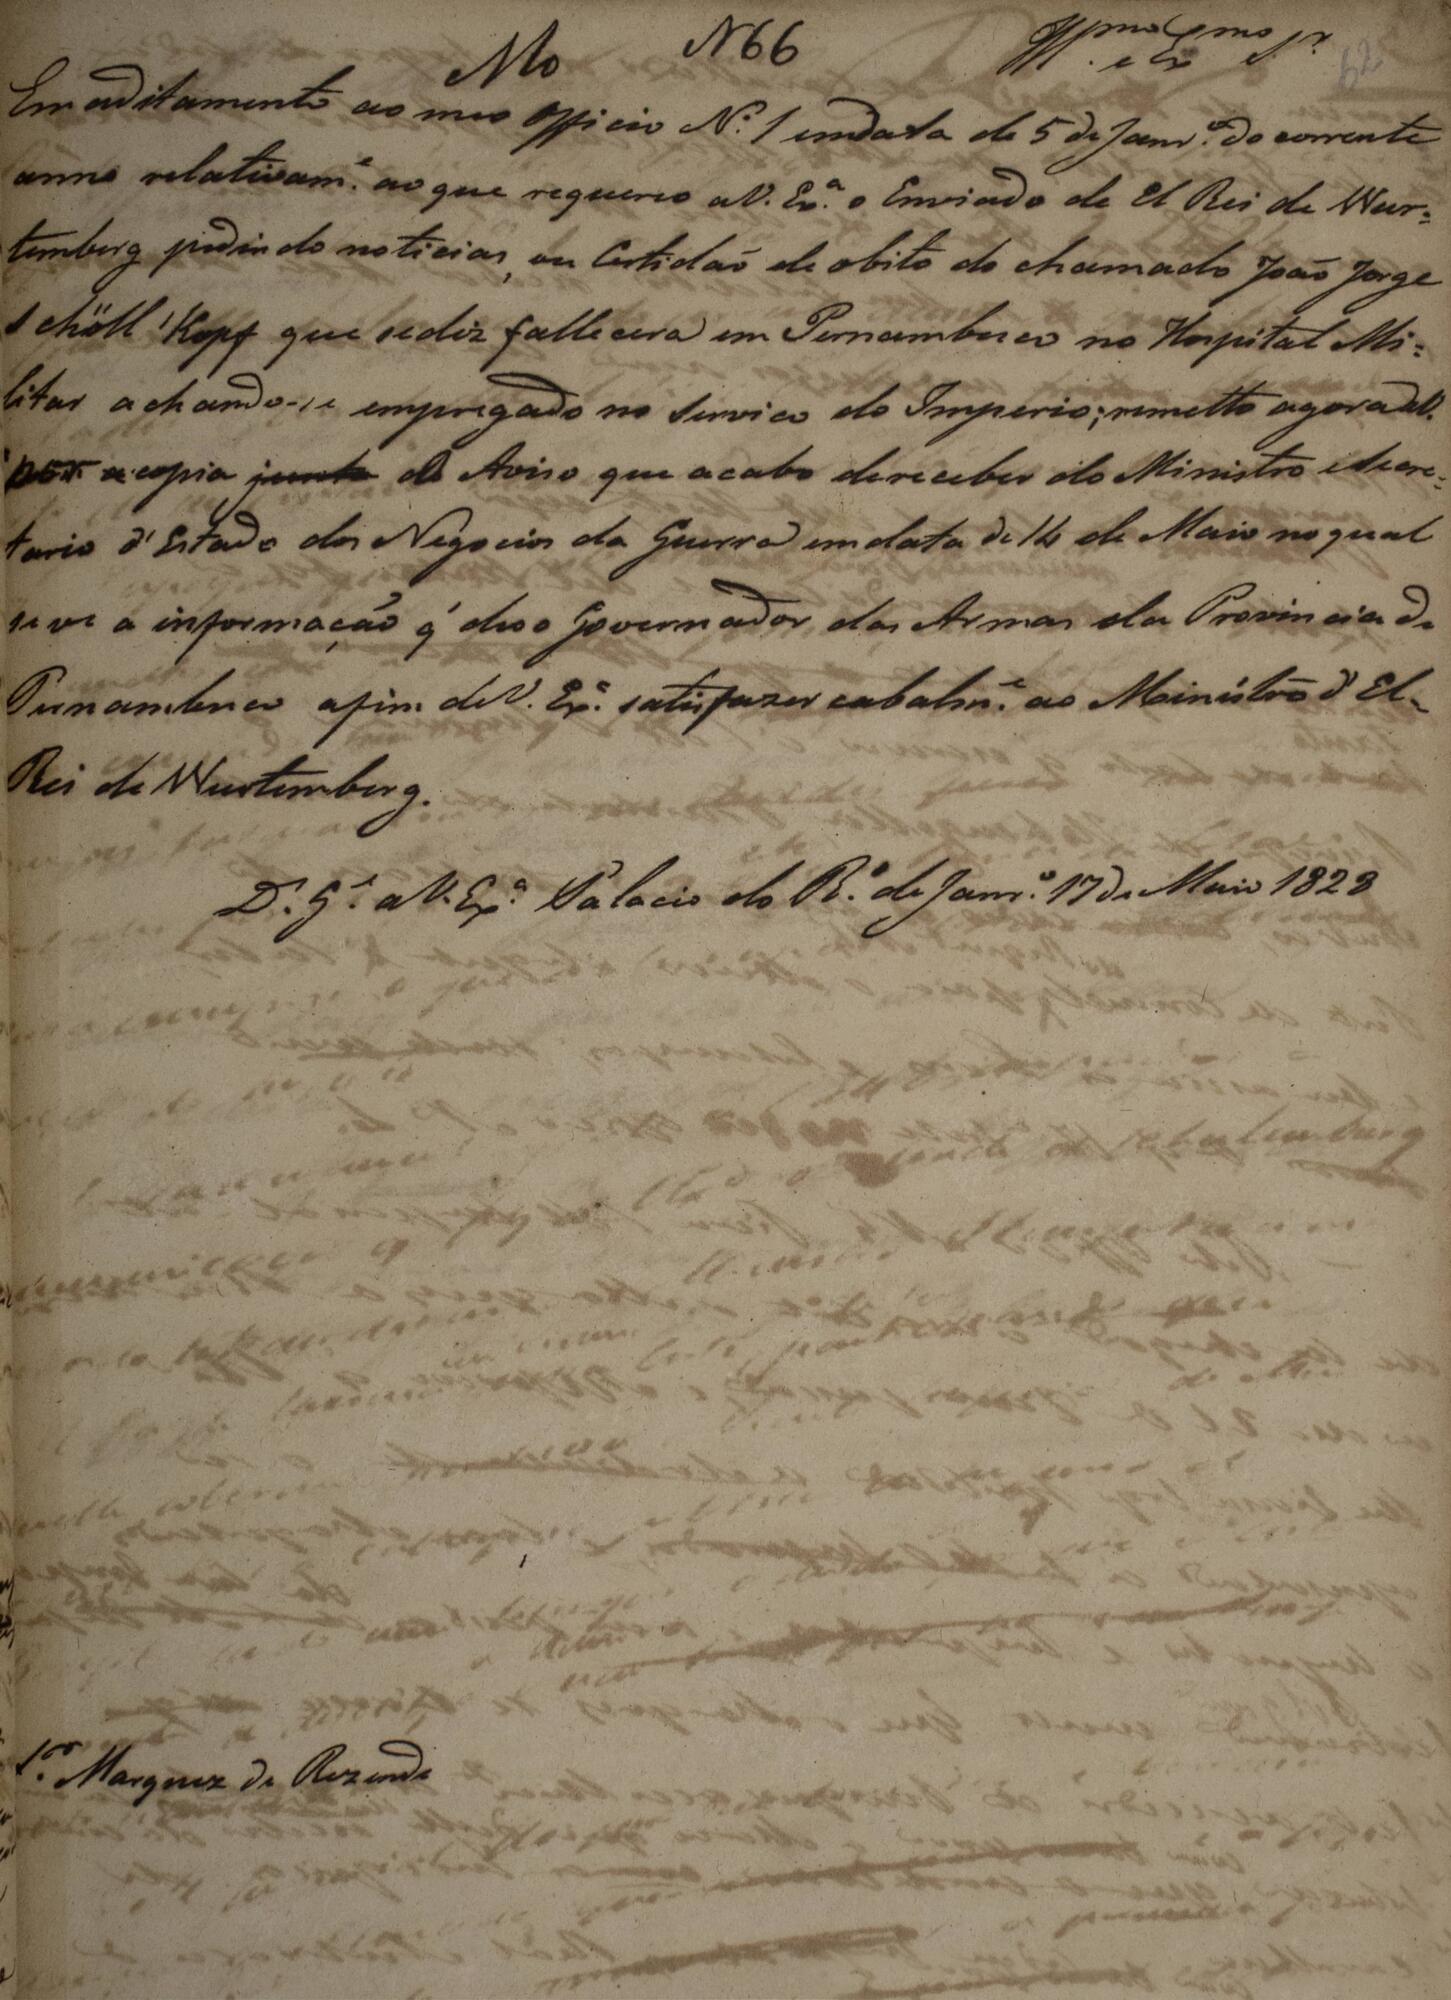 Mo N 66 Illmo e Exmo Sr. 62
Em aditamento ao meu Officio N.º 1 em data de 5 de Janr.º do corrente
anno relativam.e ao que requereo a V. Ex.a o Enviado de El Rei de Wur=
temberg pedindo noticias, ou Certidaõ de obito do chamado Joaõ Jorge
Schöll Kopf que se diz fallecera em Pernambuco no Hospital Mi=
litar achando-se empregado no servico do Imperio; remetto agora a V.
a copia junta do Aviso que acabo de receber do Ministro e Secre=
tario d'Estado dos Negocios da Guerra em data de 14 de Maio no qual
se ve a informaçaõ q' deo o Governador das Armas da Provincia de
Pernambuco afim de V. Ex.a satisfazer cabalm.e ao Ministro d'El-
Rei de Wurtemberg.
D.s G.e a V. Ex.a Palacio do R.º de Janr.º 17 de Maio 1828
S.or Marquez de Rezende